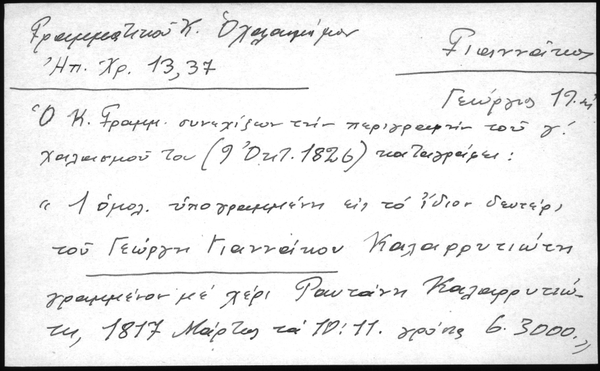 Γραμματικοῦ Κ.
Ἠπ. Χρ. 13,37
Γιαννάκος
Γεώργιος 19.
Ὁ Κ. Γραμμ. συνεχίζων τὴν περιγραφὴν τοῦ γ΄
χαλασμοῦ του (9 Ὀκτ. 1826) καταγράφει:
" 1 ὁμολ. ὑπογραμμένη εἰς τὸ ἴδιον δευτέρι
τοῦ Γεώργη Γιαννάκου Καλαρρυτιώτη
γραμμένον μὲ χέρι Καλαρρυτιώ-
τη, 1817 Μάρτιος τὰ 10:11. γρόσια 6. 3000. "